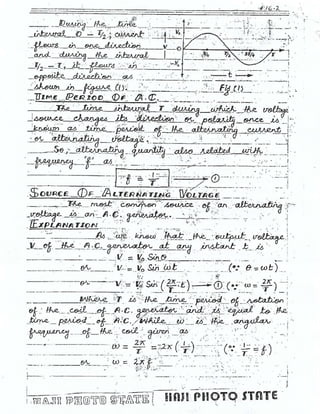 #16-2
During the time
interval 0 - T/2, current
flows in one direction
and during the interval
T/2 - T, it flows in
opposite direction as
shown in figure (1).
V₀
-V₀
T/4 T/2 3T/4 T
t
Fig(1)
TIME PERIOD OF A.C.
The time interval T during which the voltage
source changes its direction or polarity once is
known as time period of the alternating current
or alternating voltage.
So, alternating quantity also related with
frequency 'f' as
f = 1/T → ①
SOURCE OF ALTERNATING VOLTAGE
The most common source of an alternating
voltage is an A.C. generator.
EXPLANATION
As we know that the output voltage
V of the A.C. generator at any instant t is
V = V₀ Sinθ
or V = V₀ Sin ωt (∵ θ = ωt)
or V = V₀ Sin (2π/T × t) → ① (∵ ω = 2π/T)
Where T is the time period of rotation
of the coil of A.C. generator and is equal to the
time period of A.C. While ω is the angular
frequency of the coil given as
ω = 2π/T = 2π (1/T) (∵ 1/T = f)
or ω = 2π f
HAJI PHOTO STATE HAJI PHOTO STATE